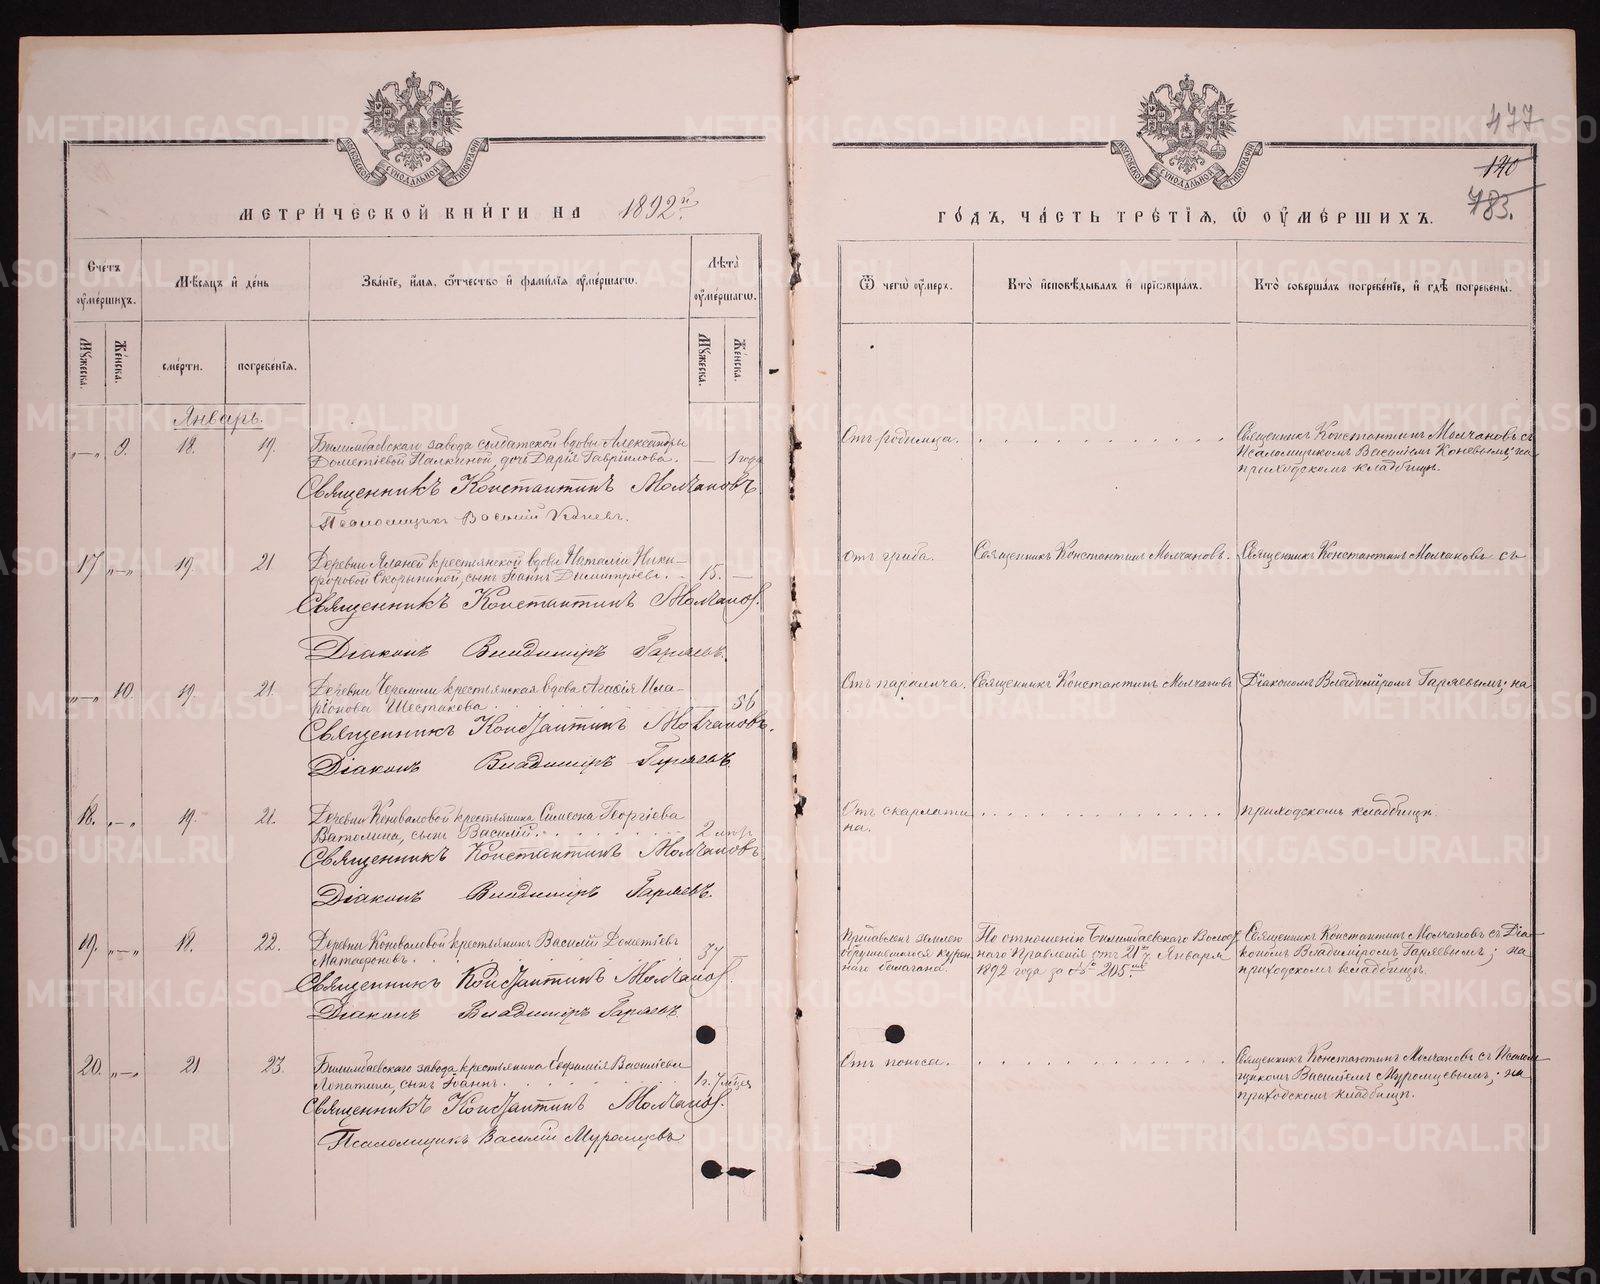 477
140
783.
МОСКОВСКОЙ СѴНОДАЛЬНОЙ ТИПОГРАФІИ
МОСКОВСКОЙ СѴНОДАЛЬНОЙ ТИПОГРАФІИ
МЕТРИ́ЧЕСКОЙ КНИ́ГИ НА 1892й
ГО́ДЪ, ЧА́СТЬ ТРЕ́ТІЯ, Ѿ ОУ҆МЕ́РШИХЪ.
Сче́тъ оу҆ме́ршихъ.
Мꙋ́жеска.
Же́нска.
Мѣ́сяцъ и҆ де́нь
сме́рти.
погребе́нія.
Зва́ніе, и҆́мя, ѻ҆́тчество и҆ фами́лія оу҆ме́ршагѡ.
Лѣта̀ оу҆ме́ршагѡ.
Мꙋ́жеска.
Же́нска.
Ѿ чегѡ̀ оу҆́меръ.
Кто̀ и҆сповѣ́дывалъ и҆ прїѡбща́лъ.
Кто̀ соверша́лъ погребе́ніе, и҆ гдѣ̀ погребены̀.
Январь.
„—„ 9. 18. 19. Билимбаевскаго завода солдатской вдовы Александры
Дометіевой Палкиной, дочь Дарія Гавріилова. — 1 года
Священникъ Константинъ Молчановъ.
Псаломщикъ Василій Коневъ.
Отъ родимца.
Священникъ Константинъ Молчановъ съ
Псаломщикомъ Василіемъ Коневымъ; на
приходскомъ кладбищѣ.
17 „—„ 19. 21 Деревни крестьянской вдовы Наталіи Ники-
форовой Скорыниной, сынъ Іоаннъ Димитріевъ. 15. —
Священникъ Константинъ Молчановъ.
Діаконъ Владиміръ Гаряевъ.
Священникъ Константинъ Молчановъ.
Священникъ Константинъ Молчановъ съ
„—„ 10. 19. 21. Деревни Черемши крестьянская вдова Агафія Ила-
ріонова Шестакова. 56
Священникъ Константинъ Молчановъ.
Діаконъ Владиміръ Гаряевъ.
Отъ паралича. Священникъ Константинъ Молчановъ
Діакономъ Владиміромъ Гаряевымъ; на
18. „—„ 19. 21. Деревни Коноваловой крестьянина Симеона Георгіева
Ватолина, сынъ Василій. 2 мѣс.
Священникъ Константинъ Молчановъ
Діаконъ Владиміръ Гаряевъ.
Отъ скарлати
на.
приходскомъ кладбищѣ.
19. „—„ 18. 22. Деревни Коноваловой крестьянинъ Василій Дометіевъ
Матафоновъ. 37
Священникъ Константинъ Молчановъ.
Діаконъ Владиміръ Гаряевъ.
Придавленъ землею
обрушившагося курен-
наго балагана.
По отношенію Билимбаевскаго Волост-
наго Правленія отъ 21го Января
1892 года за № 205мъ
Священникъ Константинъ Молчановъ съ Діа-
кономъ Владиміромъ Гаряевымъ; на
приходскомъ кладбищѣ.
20. „—„ 21 23. Билимбаевскаго завода крестьянина Василіева
Лопатина, сынъ Іоаннъ. 1 г. 7 мѣсяц
Священникъ Константинъ Молчановъ.
Псаломщикъ Василій Муромцевъ
Отъ поноса.
Священникъ Константинъ Молчановъ съ Псалом
щикомъ Василіемъ Муромцевымъ; на
приходскомъ кладбищѣ.
METRIKI.GASO-URAL.RU